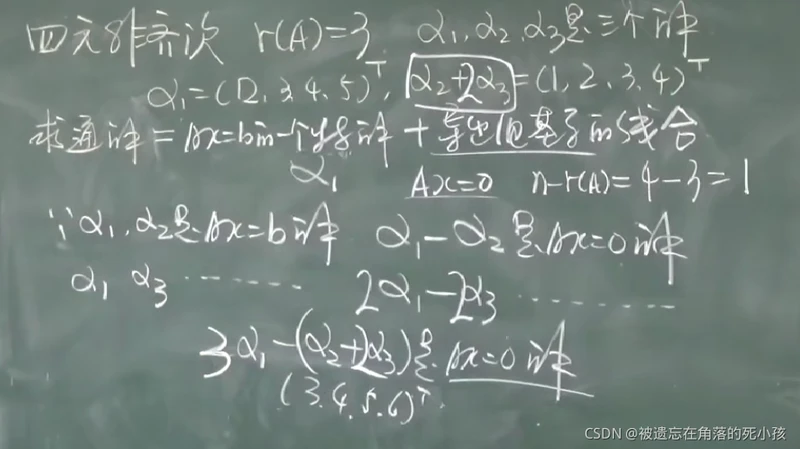 四元非齐次 r(A)=3 α₁,α₂,α₃是三个解
α₁=(2,3,4,5)ᵀ, α₂+2α₃=(1,2,3,4)ᵀ
求通解=Ax=b的一个特解+导出组基子的线合
α₁ Ax=0 n-r(A)=4-3=1
∵α₁,α₂是Ax=b解 α₁-α₂是Ax=0解
α₁ α₃ ········ 2α₁-2α₃ ··········
3α₁-(α₂+2α₃)是Ax=0解
(3,4,5,6)ᵀ
CSDN @被遗忘在角落的死小孩